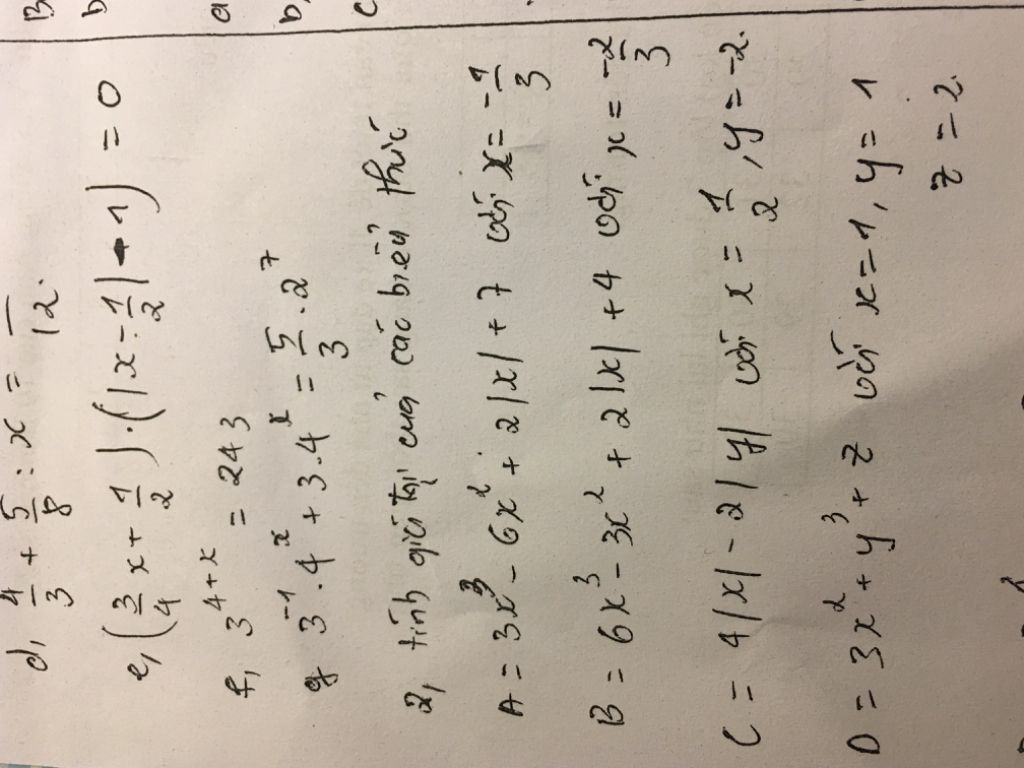 d, 4/3 + 5/8 : x = /12.
e, (3/4 x + 1/2) . (|x - 1/2| - 1) = 0
f, 3^{4+x} = 243
g 3^{-1} . 4^x + 3 . 4^x = 5/3 . 2^7
2, tính giá trị của các biểu thức
A = 3x^3 - 6x^2 + 2|x| + 7 với x = -1/3
B = 6x^3 - 3x^2 + 2|x| + 4 với x = -2/3
C = 4|x| - 2|y| với x = 1/2, y = -2.
D = 3x^2 + y^3 + z với x = 1, y = 1
z = 2.
B
b
a
b,
c